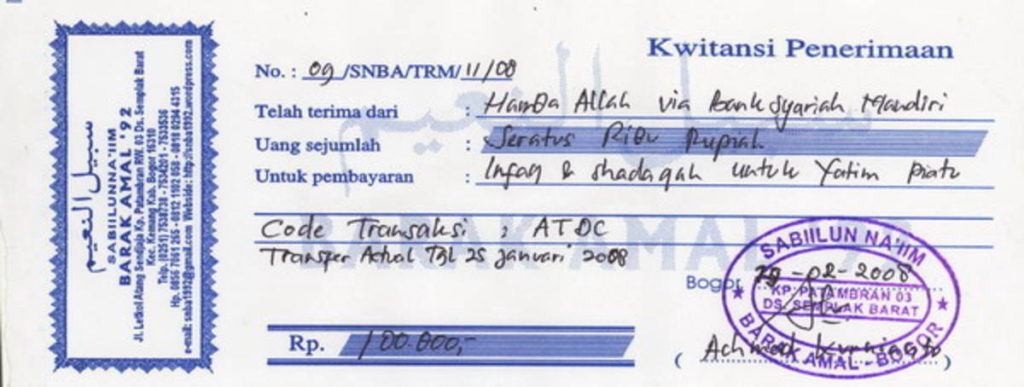 سبيل النعيم
SABIILUNNA'IIM
BARAK AMAL '92
Jl. Letkol Atang Sendjaja Kp. Patambran RW. 03 Ds. Semplak Barat
Kec. Kemang Kab. Bogor 16310
Telp. (0251) 7538738 - 7534201 - 7533536
e-mail: snba1992@gmail.com Webside: http://snba1992.wordpress.com
Kwitansi Penerimaan
No. : 09 /SNBA/TRM/ 11/08
Telah terima dari : Hamba Allah via Bank Syariah Mandiri
Uang sejumlah : Seratus Ribu Rupiah
Untuk pembayaran : Infaq & shadaqah untuk Yatim Piatu
Code Transaksi : ATDC
Transfer Actual Tgl 25 januari 2008
BARAK AMAL
Bogor, 29-02-2008
SABIILUN NA'IIM
KP. PATAMBRAN 03
DS. SEMPLAK BARAT
BARAK AMAL - BOGOR
Rp. 100.000,-
( Achmad )